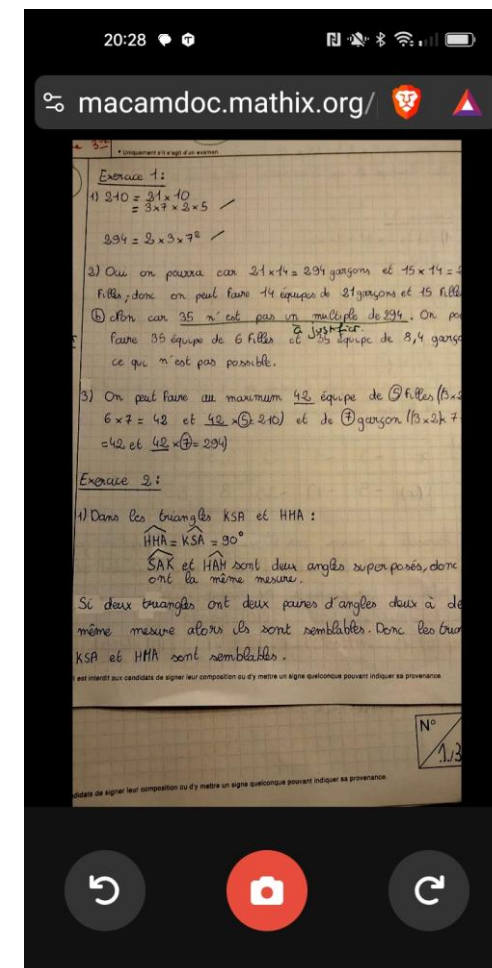 20:28
macamdoc.mathix.org/
3
* Uniquement s'il s'agit d'un examen
Exercice 1:
1) 210 = 21 x 10
= 3x7 x 2 x 5
294 = 2 x 3 x 7²
2) Oui on pourra car 21 x 14 = 294 garçons et 15 x 14 = 2
filles; donc on peut faire 14 équipes de 21 garçons et 15 fille
b) Non car 35 n'est pas un multiple de 294. On
à justifier
faire 35 équipe de 6 filles et 35 équipe de 8,4 garço
ce qui n'est pas possible.
3) On peut faire au maximum 42 équipe de 5 filles (3x2
6 x 7 = 42 et 42 x 5 = 210) et de 7 garçon ((3x2)x 7
=42 et 42 x 7 = 294)
Exercice 2:
1) Dans les triangles KSA et HMA :
HMA = KSA = 90°
SAK et HAM sont deux angles superposés, donc
ont la même mesure.
Si deux triangles ont deux paires d'angles deux à de
même mesure alors ils sont semblables. Donc les trian
KSA et HMA sont semblables.
l est interdit aux candidats de signer leur composition ou d'y mettre un signe quelconque pouvant indiquer sa provenance.
N°
1/3
didats de signer leur composition ou d'y mettre un signe quelconque pouvant indiquer sa provenance.